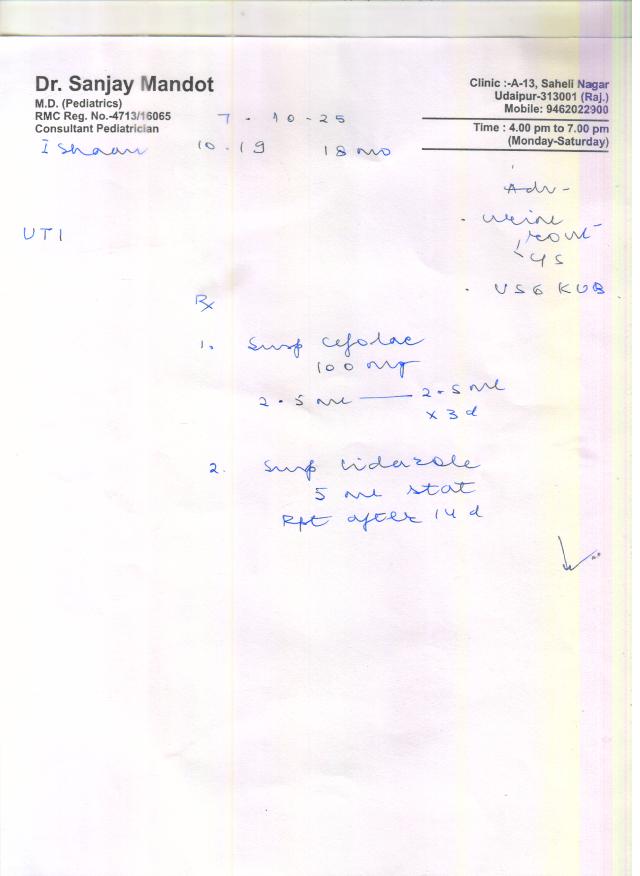 Dr. Sanjay Mandot
M.D. (Pediatrics)
RMC Reg. No.-4713/16065
Consultant Pediatrician
Clinic :-A-13, Saheli Nagar
Udaipur-313001 (Raj.)
Mobile: 9462022900
Time : 4.00 pm to 7.00 pm
(Monday-Saturday)
7 - 10 - 25
Ishaan 10.19 18 mo
Adv -
- urine
rout
c/s
- USG KUB
UTI
Rx
1. Susp Cefolac
100 mg
2.5 ml — 2.5 ml
x 3 d
2. Susp
5 ml stat
Rpt after 14 d